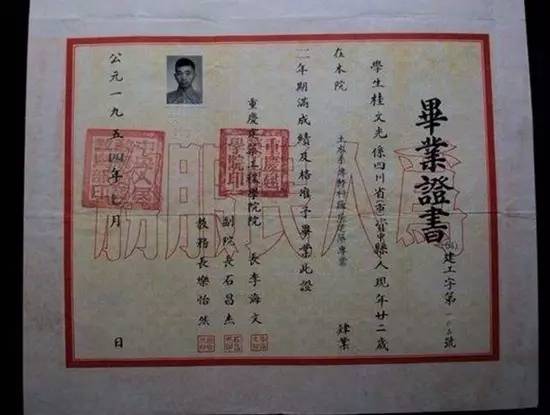 畢業證書
建工字第一〇五號
學生桂文光係四川省資中縣人現年廿二歲
在本院
專業
肄業
二年期滿成績及格准予畢業此證
重慶建築工程學院院長李海文
副院長石昌杰
教務長欒怡然
公元一九五四年七月 日
為人民服務